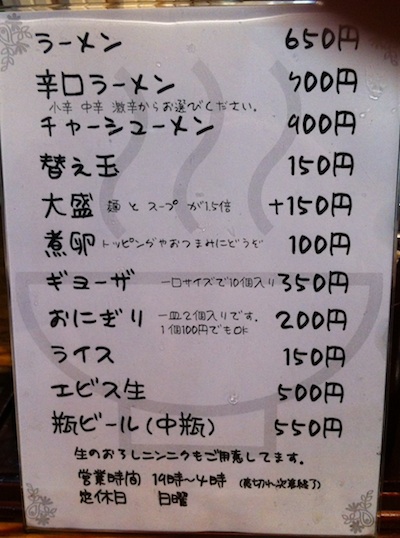 ラーメン 650円
辛口ラーメン 700円
小辛 中辛 激辛からお選びください。
チャーシューメン 900円
替え玉 150円
大盛 麺とスープが1.5倍 +150円
煮卵 トッピングやおつまみにどうぞ 100円
ギョーザ 一口サイズで10個入り 350円
おにぎり 一皿2個入りです。 200円
1個100円でもOK
ライス 150円
エビス生 500円
瓶ビール(中瓶) 550円
生のおろしニンニクもご用意してます。
営業時間 19時～4時 (売切れ次第終了)
定休日 日曜